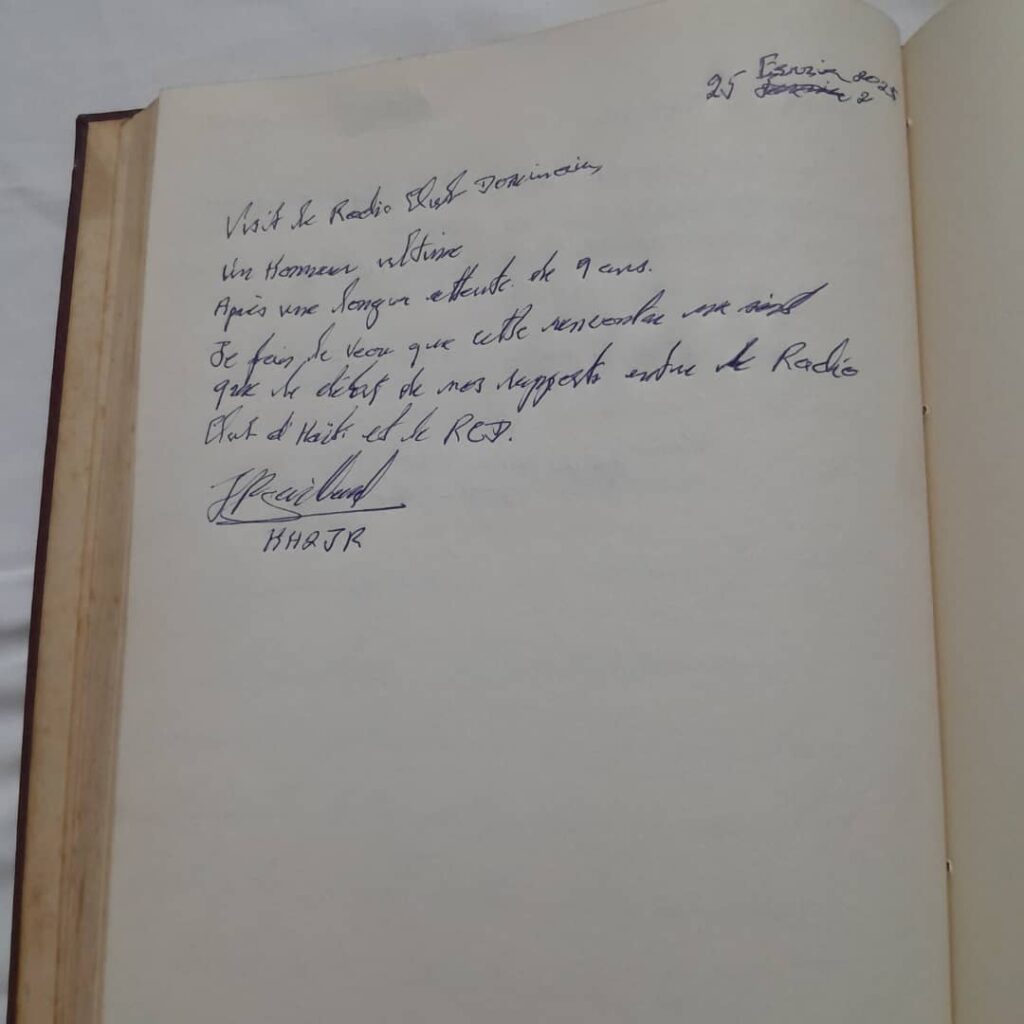 25 Fevrier 2025
Visit le Radio Club Dominicain
Un Honneur ultime
Après une longue attente de 9 ans.
Je fais le veou que cette rencontre ne soit
que le début de nos rapports entre le Radio
Club d'Haïti et le RCD.
HH2JR